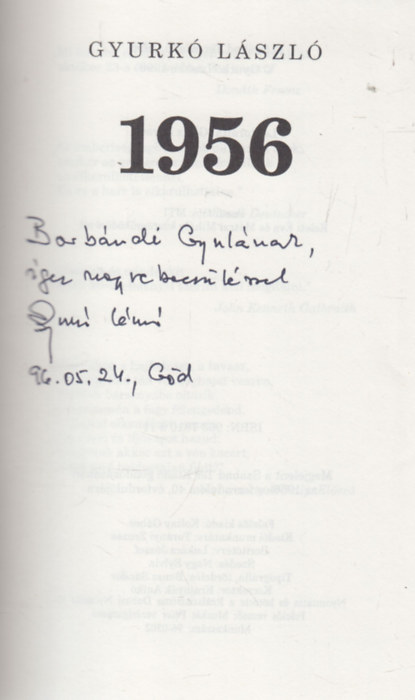 GYURKÓ LÁSZLÓ
1956
Borbándi Gyulának,
igen nagyrabecsüléssel
Gyurkó László
96.05.24., Göd